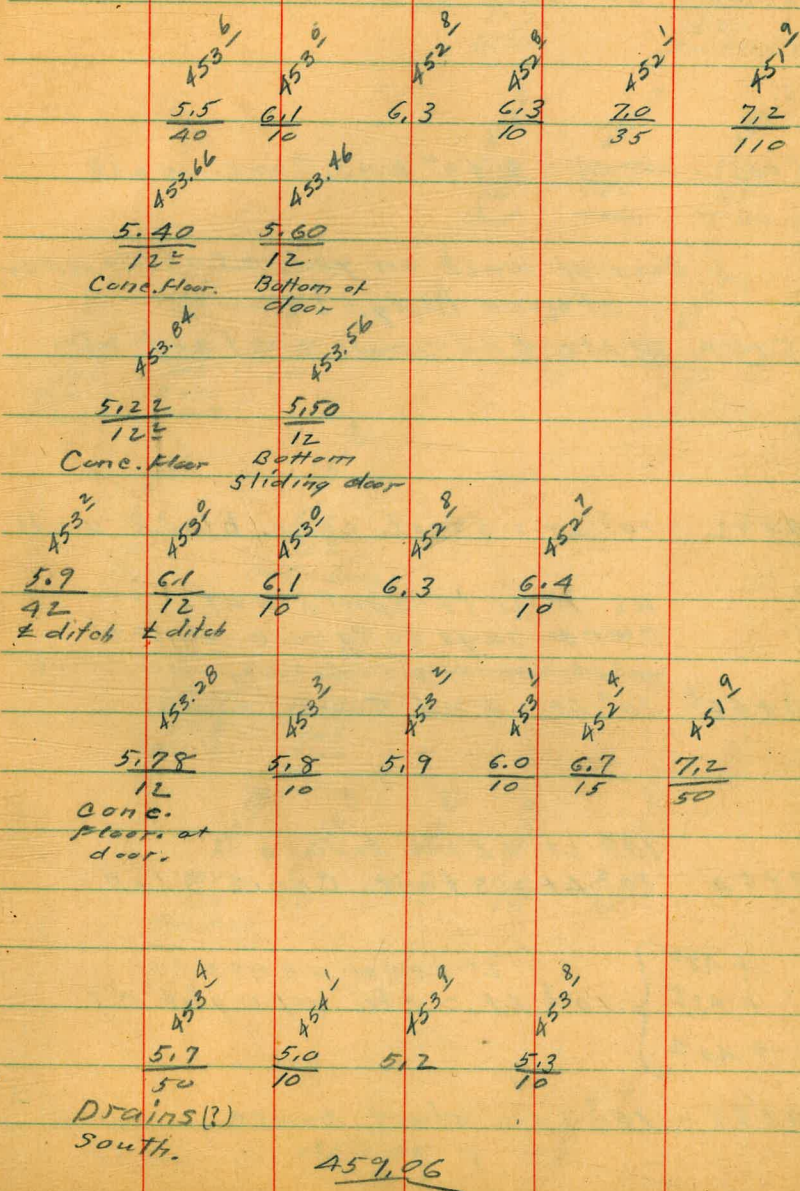 453.6 453.0 452.8 452.8 452.1 451.9
5.5 6.1 6.3 6.3 7.0 7.2
40 10 10 35 110
453.66 453.46
5.40 5.60
12 2 12
Conc. Floor. Bottom of
door
453.84 453.56
5.22 5.50
12 2 12
Conc. Floor Bottom
Sliding door
453.2 453.0 453.0 452.8 452.7
5.9 6.1 6.1 6.3 6.4
42 12 10 10
℄ ditch ℄ ditch
453.28 453.3 453.2 453.1 452.4 451.9
5.78 5.8 5.9 6.0 6.7 7.2
12 10 10 15 50
Conc.
Floor. at
door.
453.4 454.1 453.9 453.8
5.7 5.0 5.2 5.3
50 10 10
Drains(?)
South.
459.06